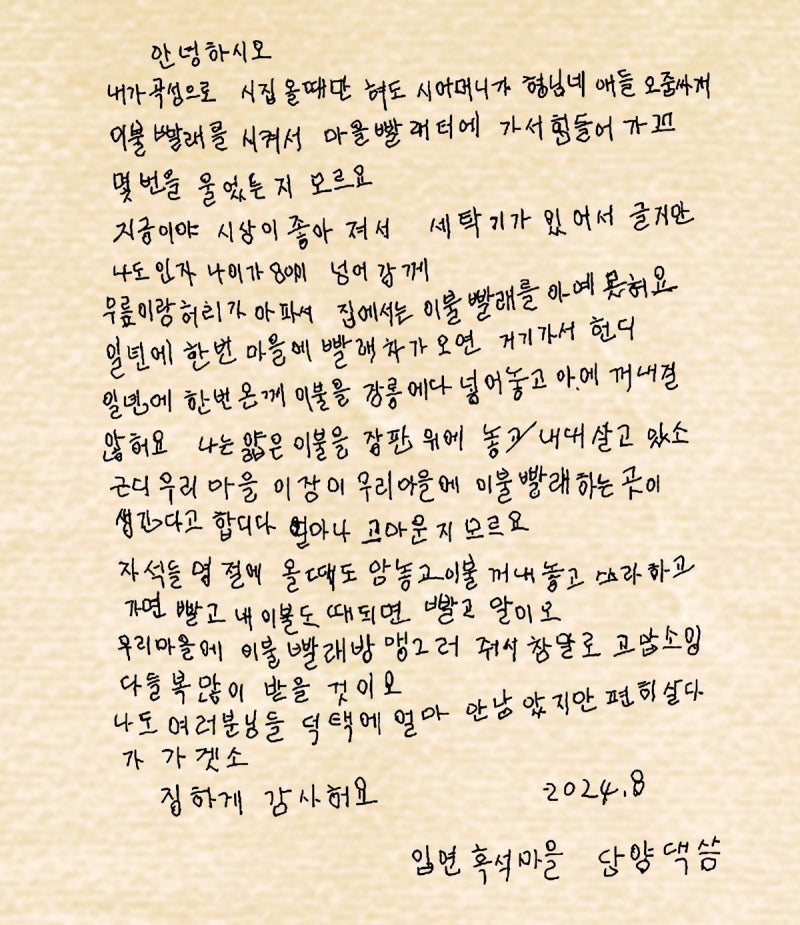 안녕하시오
내가 곡성으로 시집 올때만 혀도 시어머니가 형님네 애들 오줌싸게
이불 빨래를 시켜서 마을빨래터에 가서 힘들어 가꼬
몇번을 울었는지 모르요
지금이야 시상이 좋아 져서 세탁기가 있어서 글지만
나도 인자 나이가 80이 넘어 감께
무릎이랑 허리가 아파서 집에서는 이불빨래를 아예 못혀요
일년에 한번 마을에 빨래차가 오면 거기가서 헌디
일년에 한번 온께 이불을 장롱에다 넣어놓고 아에 꺼내질
않혀요 나는 얇은 이불을 장판 위에 놓고 내대 살고 있소
근디 우리 마을 이장이 우리마을에 이불빨래하는 곳이
생긴다고 합디다 얼마나 고마운지 모르요
자석들 명절에 올때도 암놓고 이불 꺼내놓고 쓰라하고
가면 빨고 내 이불도 때되면 빨고 말이오
우리마을에 이불 빨래방 맹그러 줘서 참말로 고맙소잉
다들 복 많이 받을 것이오
나도 여러분님들 덕택에 얼마 안남았지만 편히살다
가 가겟소
집하게 감사혀요 2024.8
입면 흑석마을 단양댁 씀